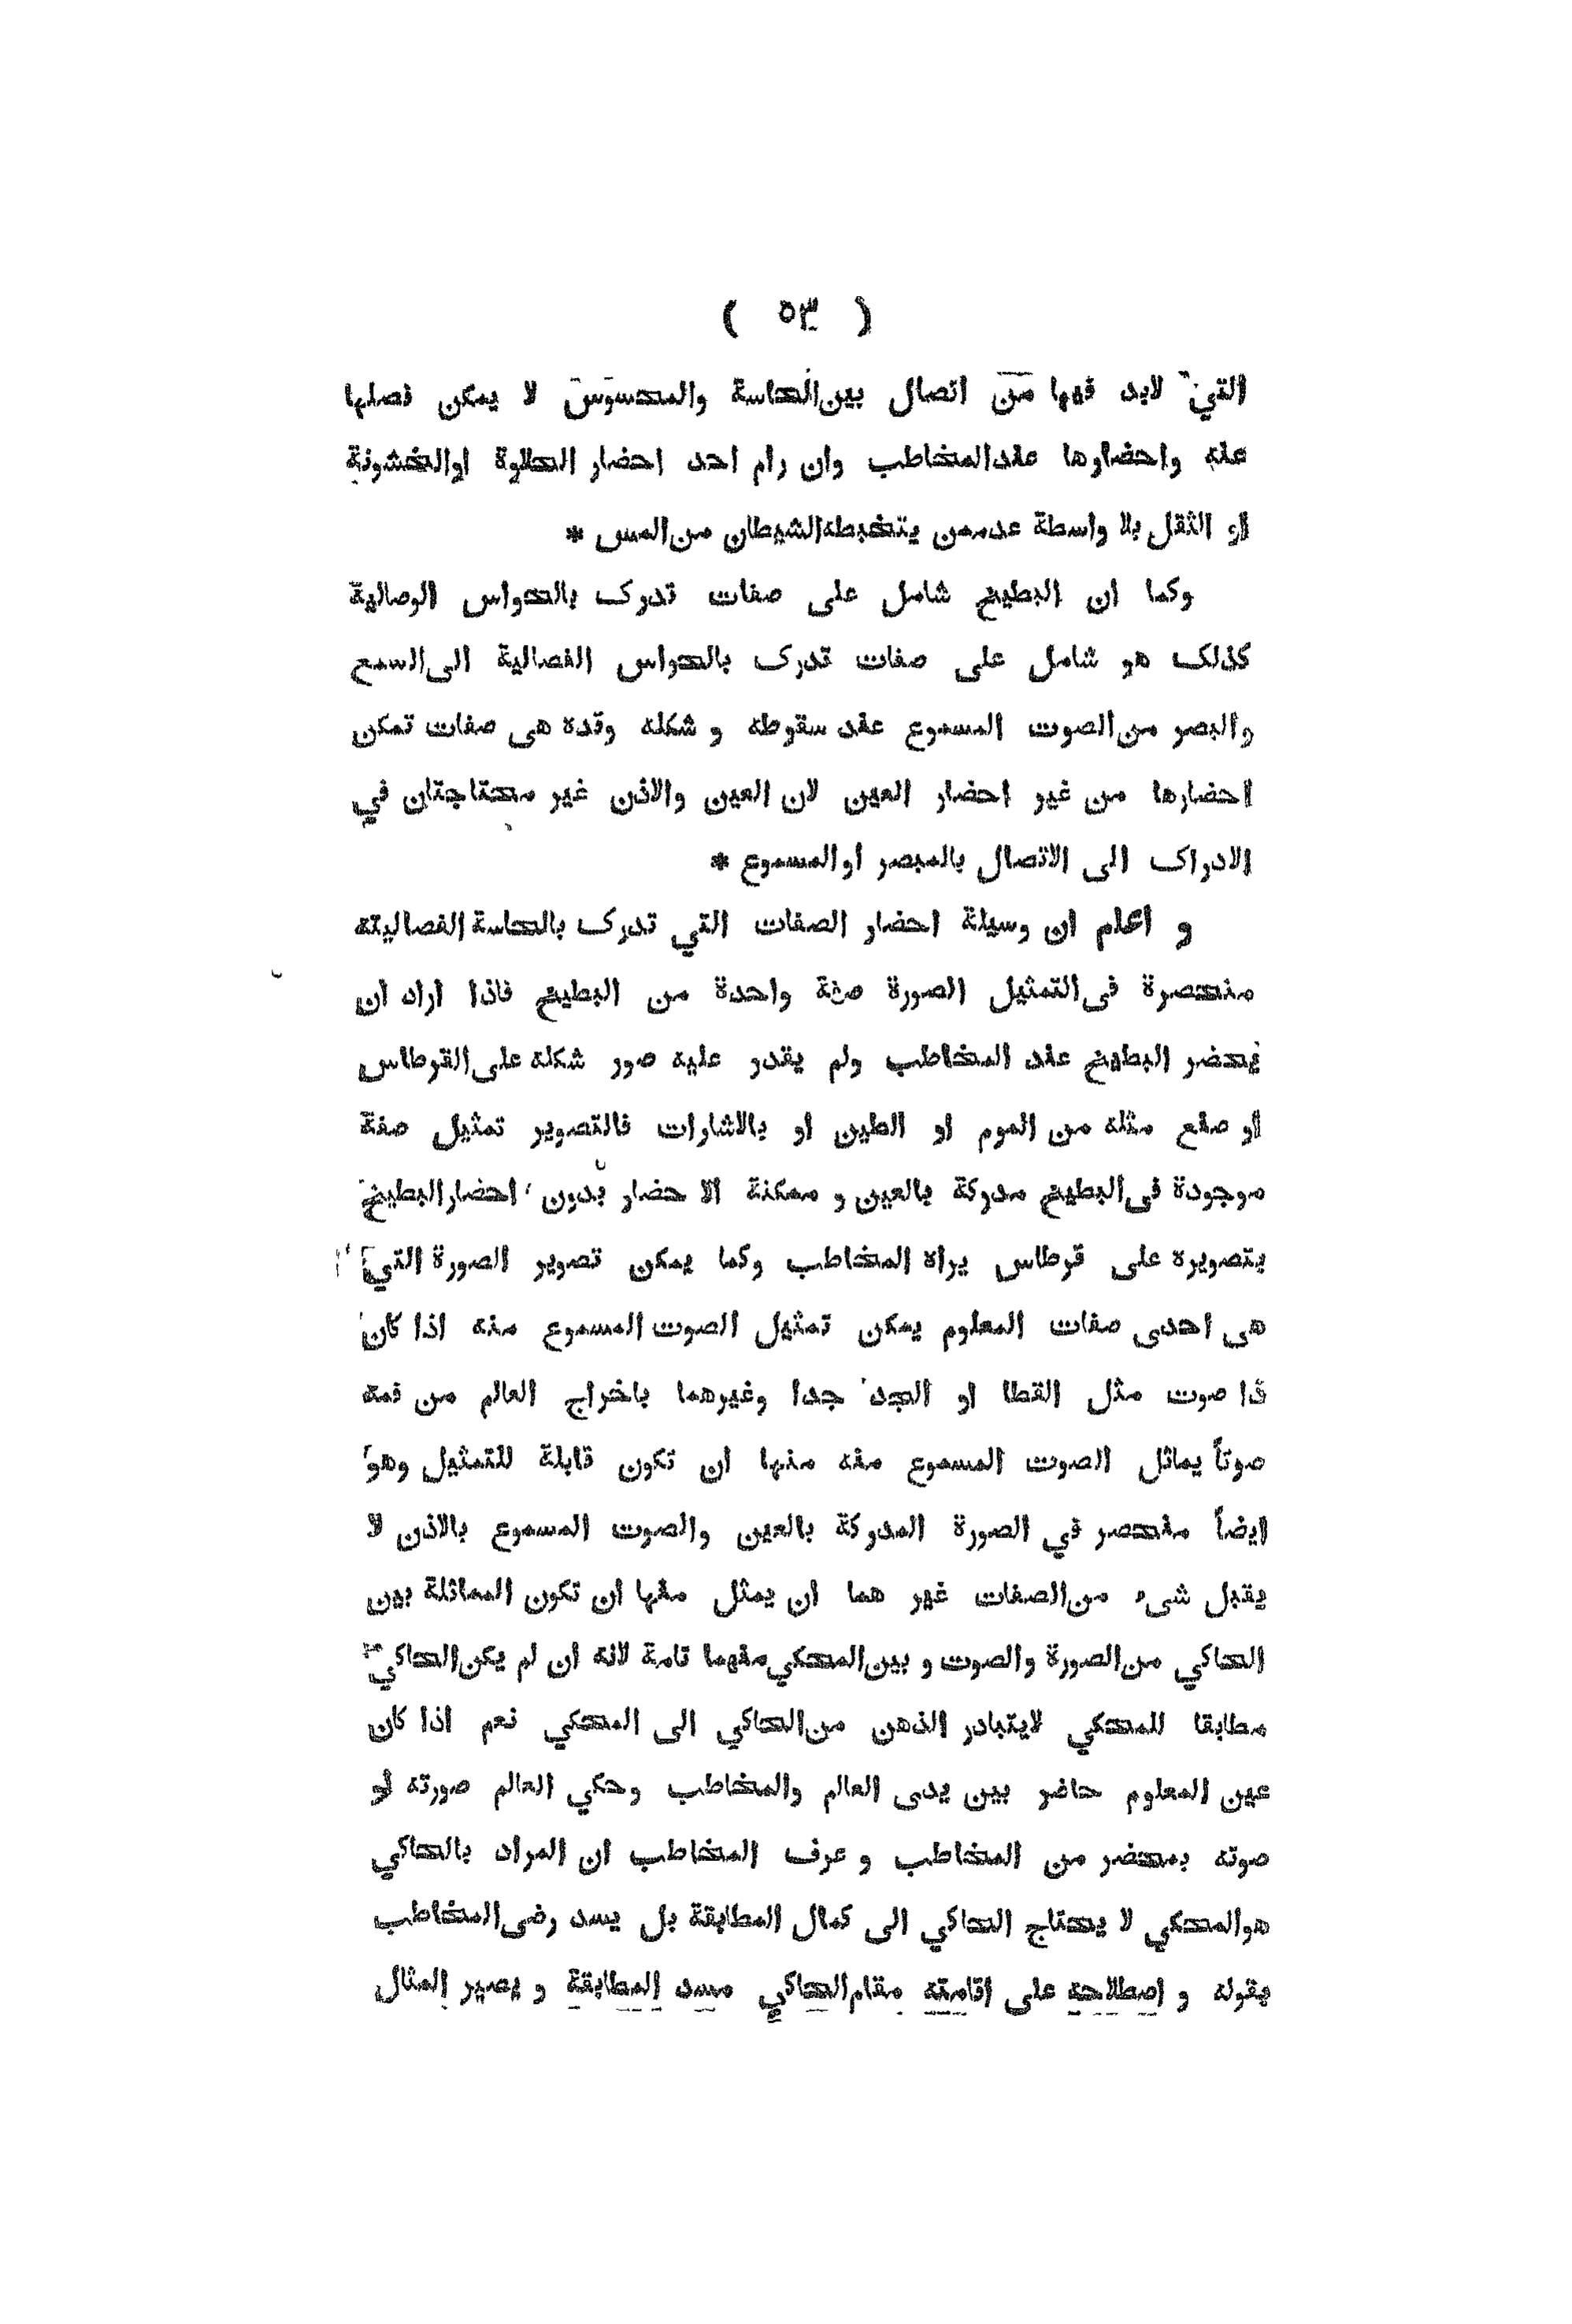 ( ٥٣ )
التي لابد فيها من اتصال بين الحاسة والمحسوس لا يمكن فصلها
عنه واحضارها عند المخاطب وان رام احد احضار الحلاوة او الخشونة
او الثقل بلا واسطة عد ممن يتخبطه الشيطان من المس *
وكما ان البطيخ شامل على صفات تدرك بالحواس الوصالية
كذلك هو شامل على صفات تدرك بالحواس الفصالية الى السمع
والبصر من الصوت المسموع عند سقوطه و شكله وقده هى صفات تمكن
احضارها من غير احضار العين لان العين والاذن غير محتاجتان في
الادراك الى الاتصال بالمبصر او المسموع *
و اعلم ان وسيلة احضار الصفات التي تدرك بالحاسة الفصاليته
منحصرة فى التمثيل الصورة صفة واحدة من البطيخ فاذا اراد ان
يحضر البطيخ عند المخاطب ولم يقدر عليه صور شكله على القرطاس
او صنع مثله من الموم او الطين او بالاشارات فالتصوير تمثيل صفة
موجودة فى البطيخ مدركة بالعين و ممكنة الا حضار بدون احضار البطيخ
بتصويره على قرطاس يراه المخاطب وكما يمكن تصوير الصورة التي
هى احدى صفات المعلوم يمكن تمثيل الصوت المسموع منه اذا كان
ذا صوت مثل القطا او الجد جدا وغيرهما باخراج العالم من فمه
صوتاً يماثل الصوت المسموع منه منها ان تكون قابلة للتمثيل وهو
ايضاً منحصر في الصورة المدركة بالعين والصوت المسموع بالاذن لا
يقبل شىء من الصفات غير هما ان يمثل منها ان تكون المماثلة بين
الحاكي من الصورة والصوت و بين المحكي منهما تامة لانه ان لم يكن الحاكي
مطابقا للمحكي لايتبادر الذهن من الحاكي الى المحكي نعم اذا كان
عين المعلوم حاضر بين يدى العالم والمخاطب وحكي العالم صورته او
صوته بمحضر من المخاطب و عرف المخاطب ان المراد بالحاكي
هو المحكي لا يحتاج الحاكي الى كمال المطابقة بل يسد رضى المخاطب
بقوله و اصطلاحه على اقامته مقام الحاكي مسد المطابقة و يصير المثال